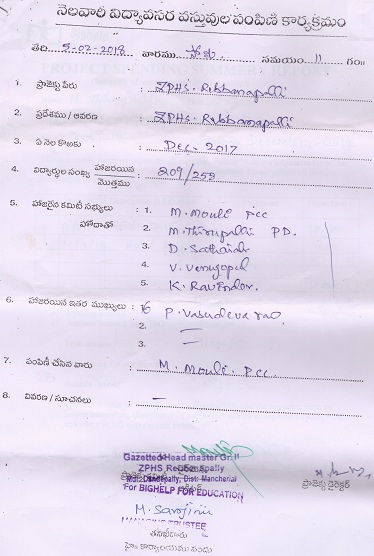 నెలవారీ విద్యావసర వస్తువుల పంపిణీ కార్యక్రమం
తేది. 5-02-2018 వారము సోమ సమయం 11 గం॥
1. ప్రాజెక్టు పేరు : ZPHS. Rebbanapalli
2. ప్రదేశము / ఆవరణ : ZPHS. Rebbanapalli
3. ఏ నెల కొఱకు : Dec - 2017
4. విద్యార్థుల సంఖ్య హాజరయిన / మొత్తము : 209/258
5. హాజరైన కమిటీ సభ్యులు : 1. M. Moule Pcc
హోదాతో 2. M. Thirupathi PD.
3. D. Sathaiah
4. V. Venugopal
5. K. Ravinder.
6. హాజరయిన ఇతర ముఖ్యులు : P. Vasudeva rao.
2. —
3. —
7. పంపిణీ చేసిన వారు : M. Moule. Pcc.
8. వివరణ / సూచనలు : —
Gazetted Head master Gr.II
ZPHS, Rebbanapally
Mdl: Dandepally, Dist: Mancherial
ప్రాజెక్టు డైరెక్టర్
For BIGHELP FOR EDUCATION
M. Sarojini
MANAGING TRUSTEE
తనిఖీదారు
హెడ్ కార్యాలయము నందు